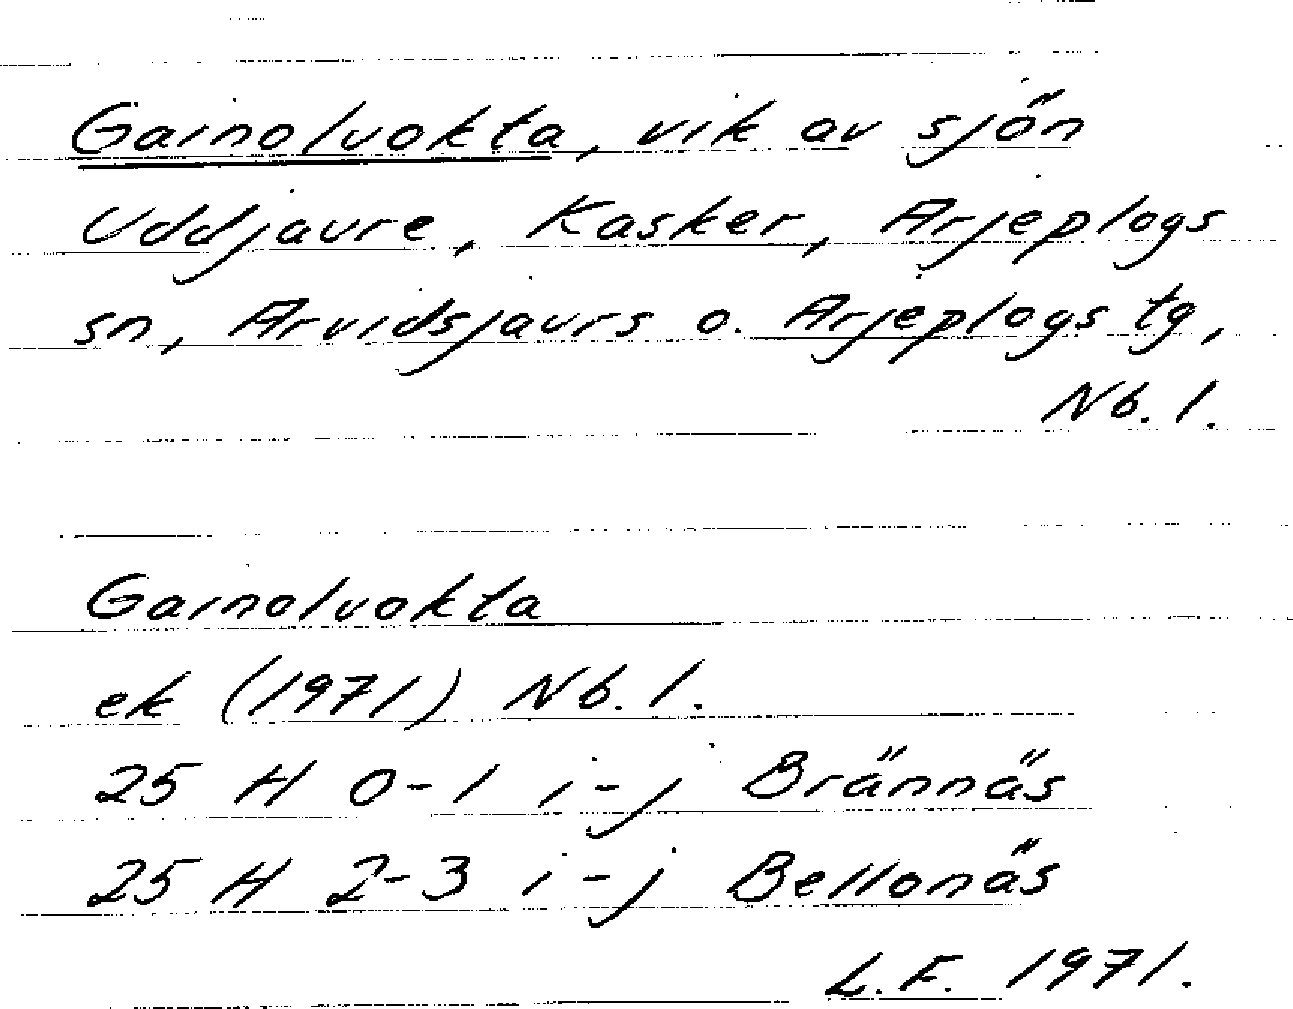 Gainoluokta, vik av sjön
Uddjaure, Kasker, Arjeplogs
sn, Arvidsjaurs o. Arjeplogs tg,
Nb. l.
Gainoluokta
ek (1971) Nb. l.
25 H 0-1 i-j Brännäs
25 H 2-3 i-j Bellonäs
L.F. 1971.